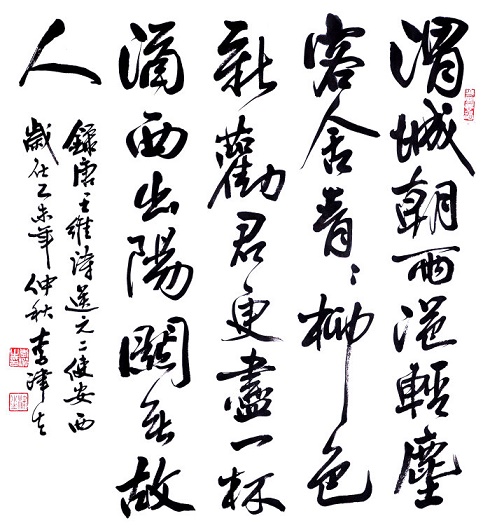 渭城朝雨浥輕塵
客舍青〻柳色
新勸君更盡一杯
酒西出陽關無故
人
錄唐王維詩送元二使安西
歲在乙未年仲秋李